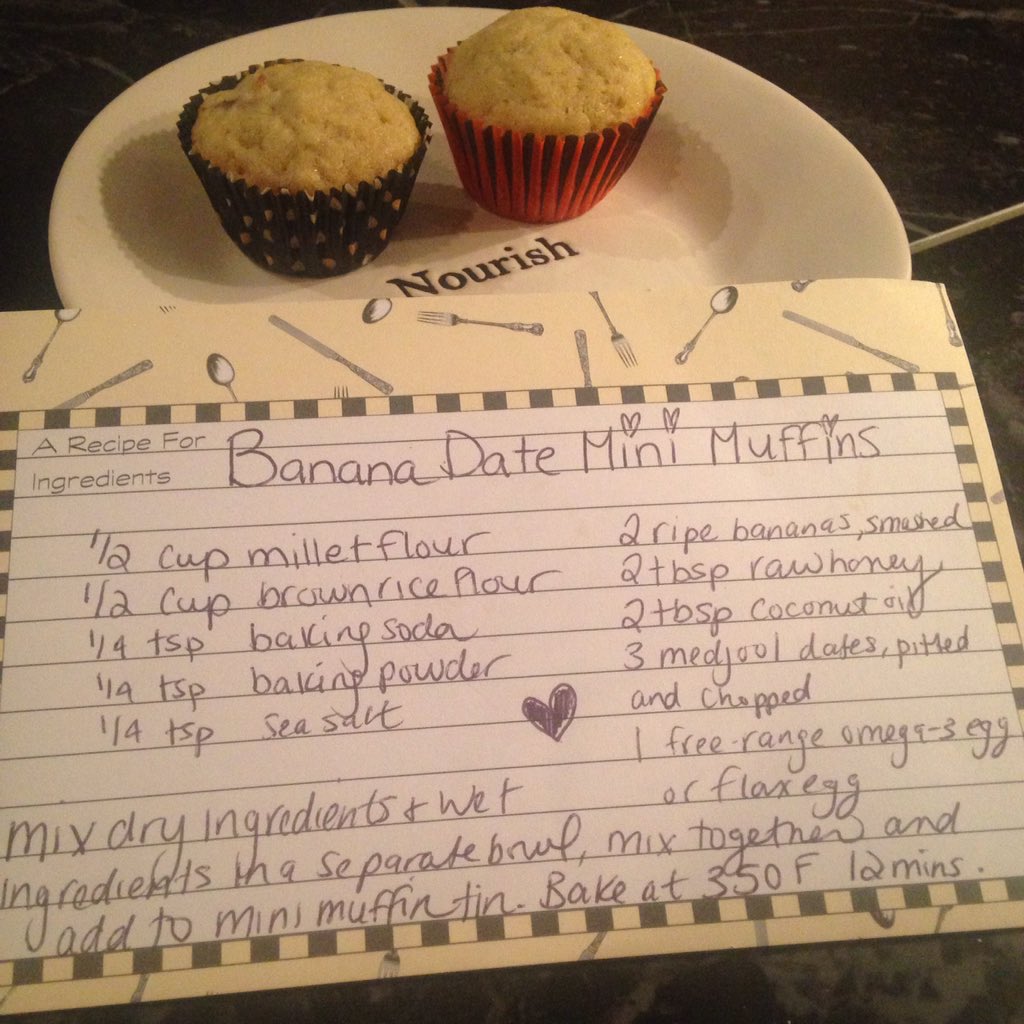 Nourish
A Recipe For Banana Date Mini Muffins
Ingredients
1/2 cup millet flour
1/2 cup brown rice flour
1/4 tsp baking soda
1/4 tsp baking powder
1/4 tsp sea salt
2 ripe bananas, smashed
2 tbsp raw honey
2 tbsp coconut oil
3 medjool dates, pitted
and chopped
1 free-range omega-3 egg
or flax egg
mix dry ingredients + wet
ingredients in a separate bowl, mix together and
add to mini muffin tin. Bake at 350 F 12 mins.